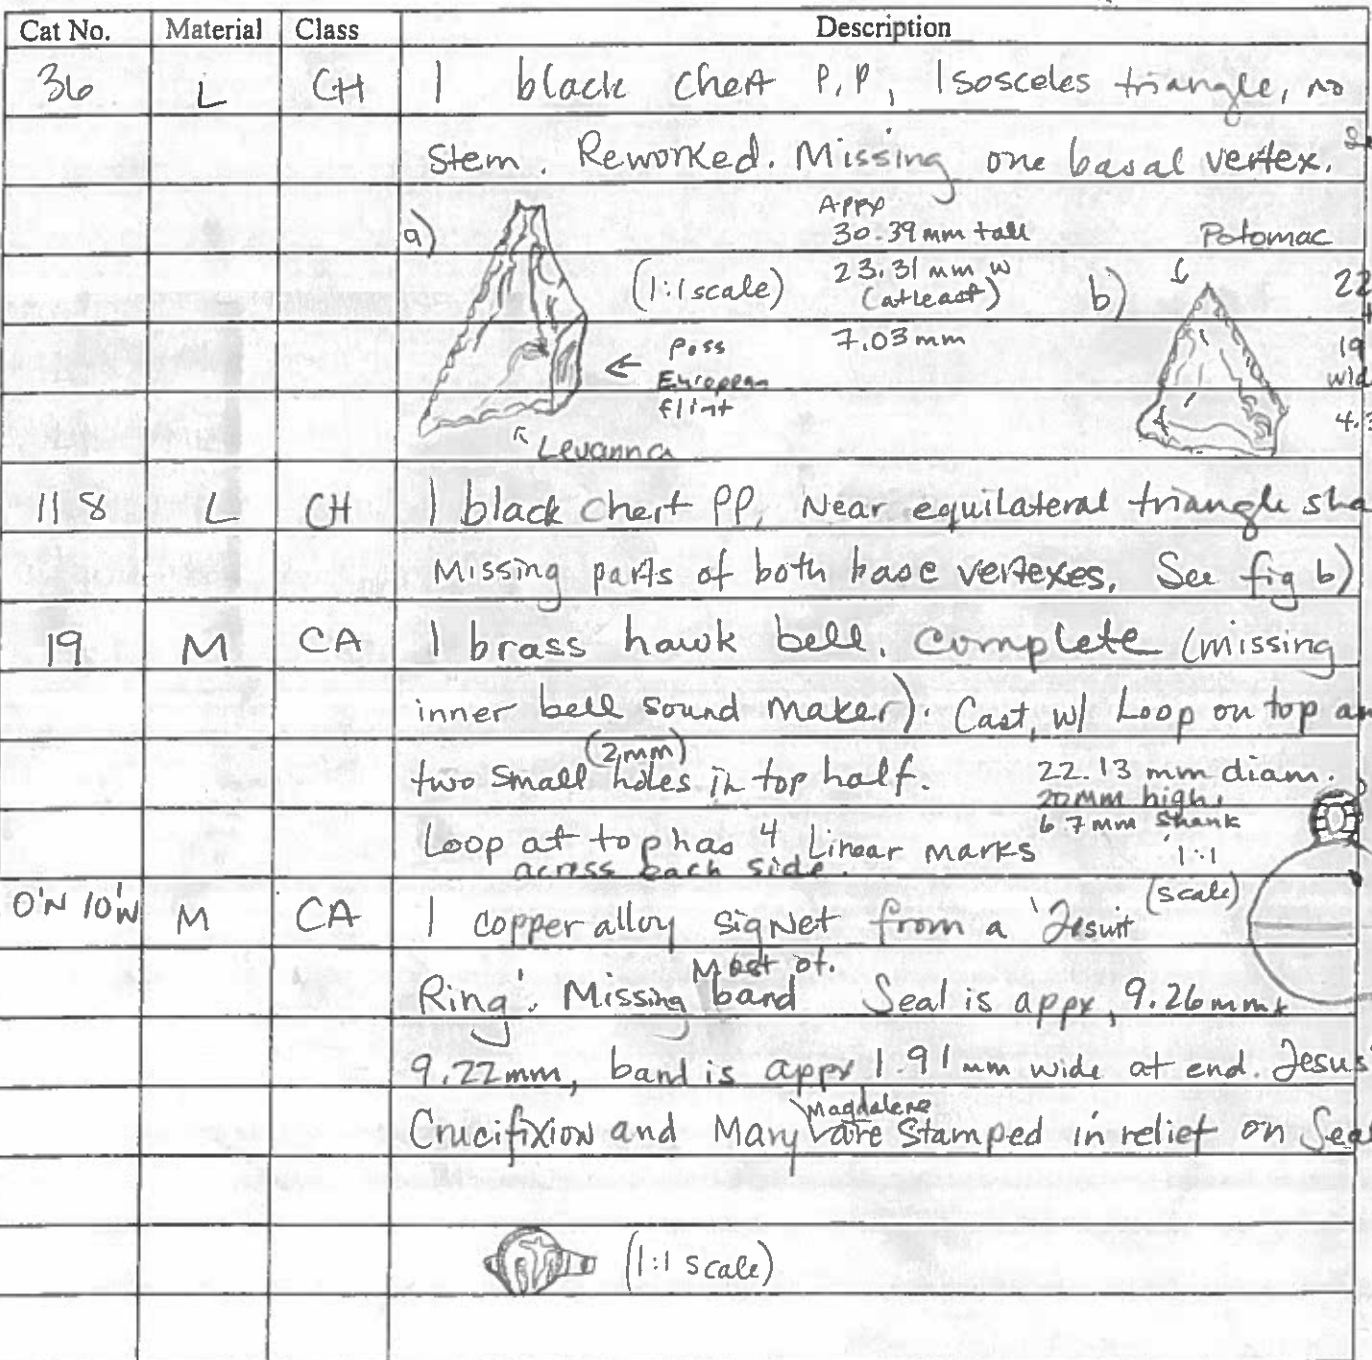 Cat No. Material Class Description
36 L CH 1 black chert P.P, Isosceles triangle, no
Stem. Reworked. Missing one basal vertex.
a) Appx
30.39 mm tall
(1:1 scale) 23.31 mm w
(at least)
7.03 mm
← Poss
European
flint
Levanna
Potomac
b) 22
19
wid
4.3
118 L CH 1 black chert PP, Near equilateral triangle sha
Missing parts of both base vertexes. See fig b)
19 M CA 1 brass hawk bell. Complete (missing
inner bell sound maker). Cast, w/ Loop on top an
(2mm)
two small holes in top half. 22.13 mm diam.
20mm high,
6.7 mm shank
Loop at top has 4 Linear marks 1:1
across each side. (scale)
0'N 10'W M CA 1 copper alloy sigNet from a 'Jesuit
Most of.
Ring'. Missing band Seal is appx, 9.26mm x
9.22mm, band is appx 1.91 mm wide at end. Jesus'
Magdalene
Crucifixion and Mary are Stamped in relief on Seal
(1:1 scale)